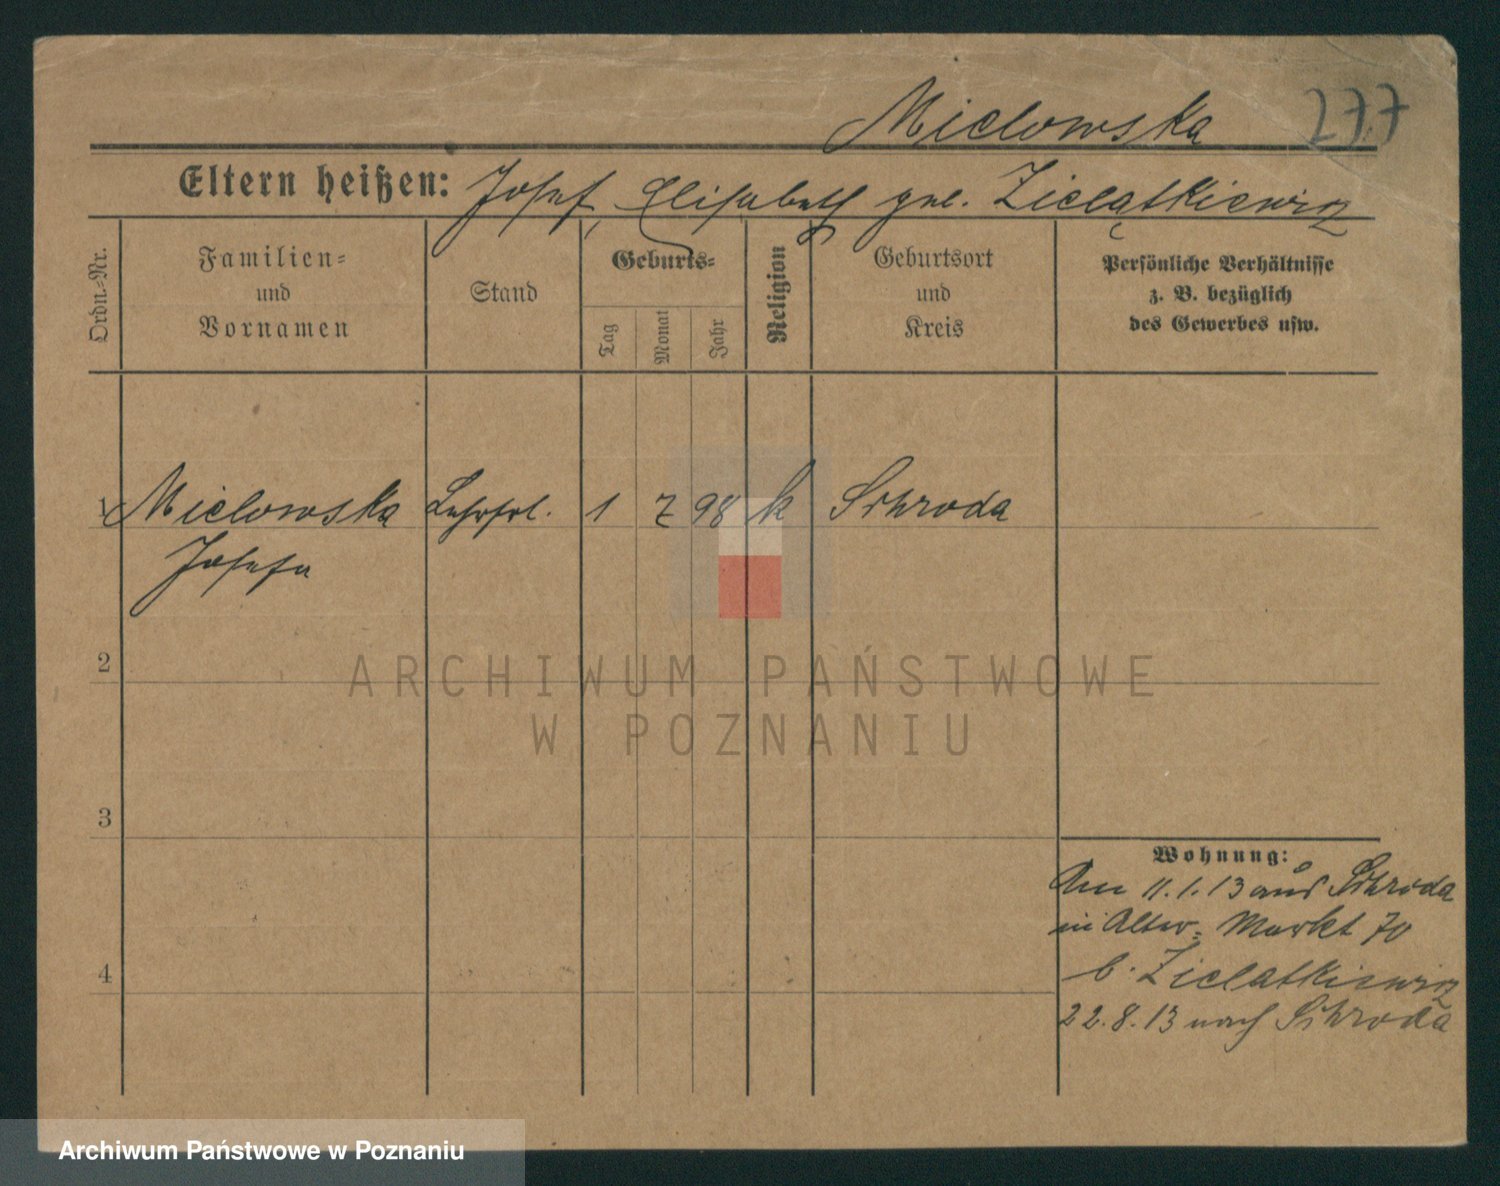 Mielowska 277
Eltern heißen: Josef, Elisabeth geb. Zielątkiewicz
Ordn.-Nr.
Familien-
und
Vornamen
Stand
Geburts-
Tag
Monat
Jahr
Religion
Geburtsort
und
Kreis
Persönliche Verhältnisse
z. B. bezüglich
des Gewerbes usw.
1 Mielowska Lehrfrl. 1 7 98 k Schroda
Josefa
2
ARCHIWUM PAŃSTWOWE
W POZNANIU
3
Wohnung:
Am 11.1.13 aus Schroda
in Alter-Markt 70
b. Zielatkiewicz
4
22.8.13 nach Schroda
Archiwum Państwowe w Poznaniu